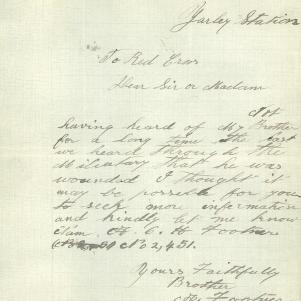 Yarley Station
To Red Cross
Dear Sir or Madam
Not
having heard of My Brother
for a long time the last
we heard through the
Milentary that he was
wounded I thought it
may be possible for you
to seek more information
and kindly let me know
Nam. A. C. H. Footner
No 2,451.
Yours Faithfully
Brother